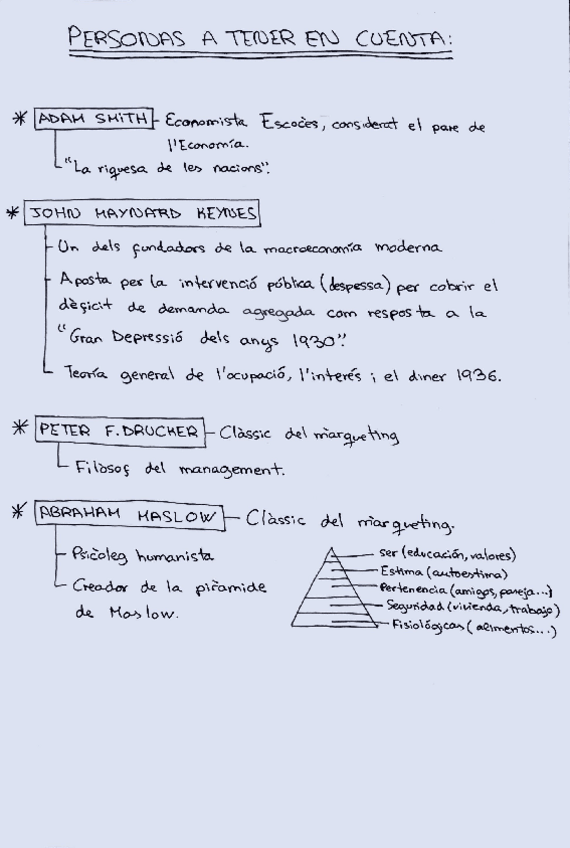 PERSONAS A TENER EN CUENTA:
* ADAM SMITH - Economista Escocès, considerat el pare de
l'Economía.
"La riquesa de les nacions".
* JOHN MAYNARD KEYNES
Un dels fundadors de la macroeconomía moderna
Aposta per la intervenció pública (despessa) per cobrir el
dèficit de demanda agregada com resposta a la
"Gran Depressió dels anys 1930".
Teoría general de l'ocupació, l'interés i el diner 1936.
* PETER F. DRUCKER - Clàssic del màrqueting
Filòsof del management.
* ABRAHAM MASLOW - Clàssic del màrqueting.
Psicòleg humanista
Creador de la piràmide
de Maslow.
ser (educación, valores)
Estima (autoestima)
Pertenencia (amigos, pareja...)
Seguridad (vivienda, trabajo)
Fisiológicas (alimentos...)